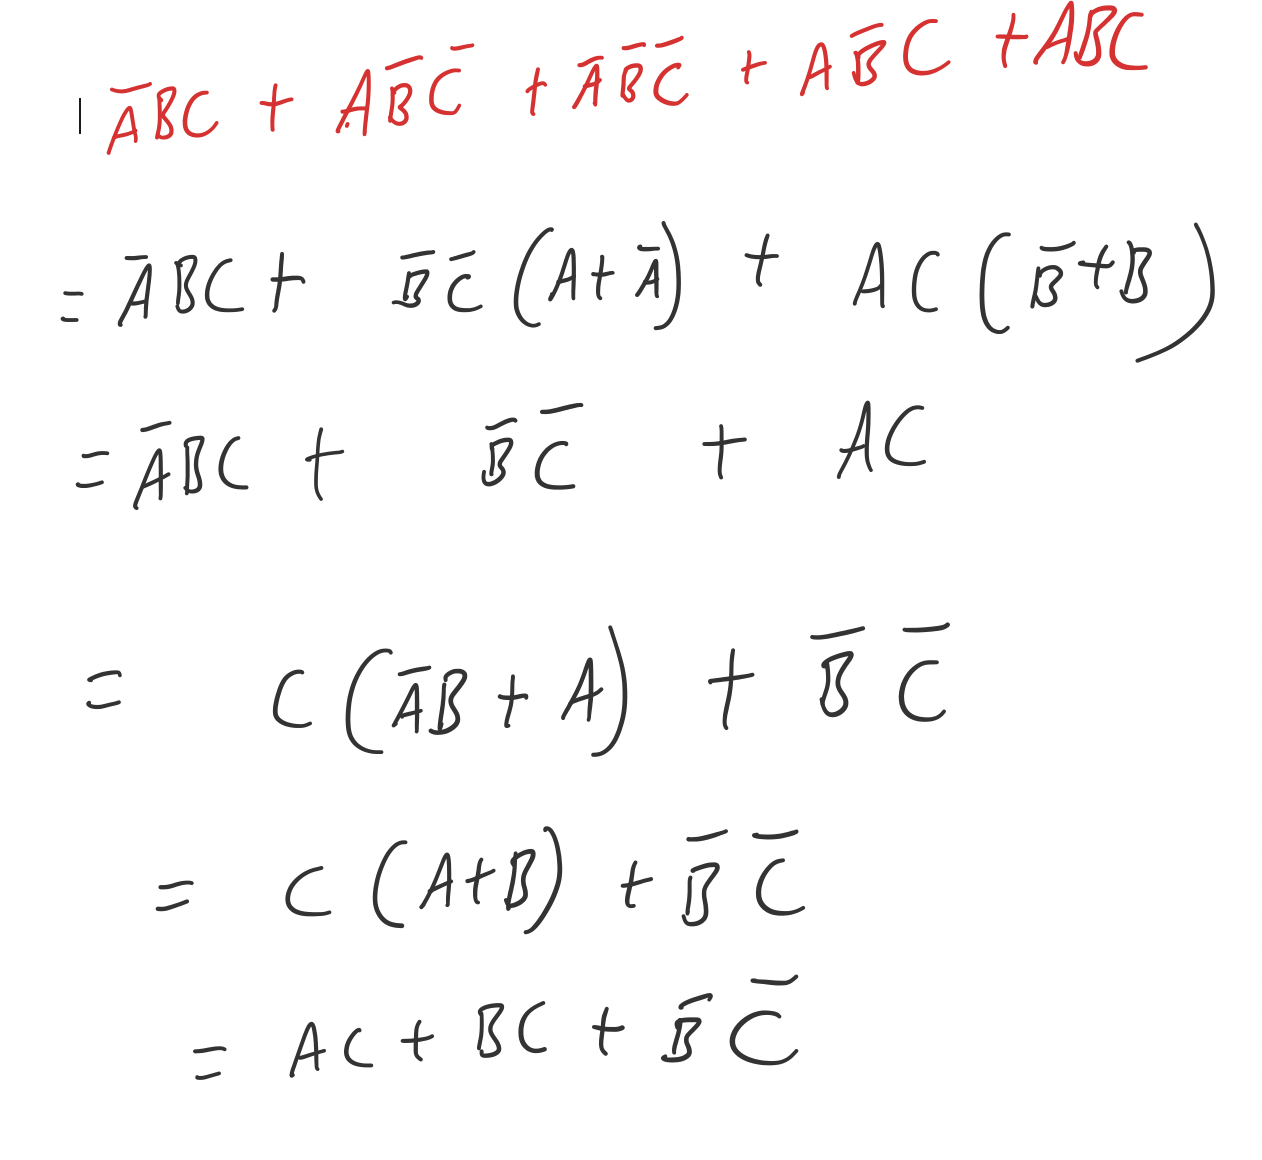 A̅BC + AB̅C̅ + A̅B̅C̅ + AB̅C + ABC
= A̅BC + B̅C̅(A + A̅) + AC(B̅ + B)
= A̅BC + B̅C̅ + AC
= C(A̅B + A) + B̅C̅
= C(A+B) + B̅C̅
= AC + BC + B̅C̅